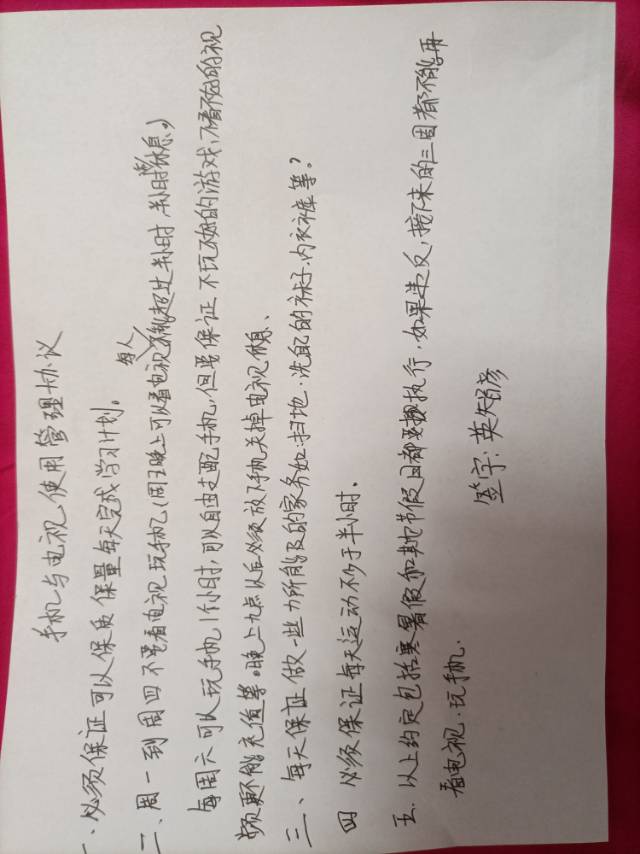 手机与电视使用管理协议
一、必须保证可以保质保量每天完成学习计划。
二、周一到周四不準看电视玩手机(周五晚上可以看电视 每人 超过半小时,半小时休息。)
每周六可以玩手机1个小时,可以自由支配手机,但要保证不玩不好的游戏,不看不好的视
频更不能充值等。晚上九点以后必须放下手机关掉电视休息。
三、每天保证做一些力所能及的家务如:扫地·洗自己的袜子·内衣裤等?
四 必须保证每天运动不少于半小时.
五. 以上约定包括寒暑假和其它节假日都要执行.如果违反,接下来的三周都不能再
看电视·玩手机.
签字:英智彦